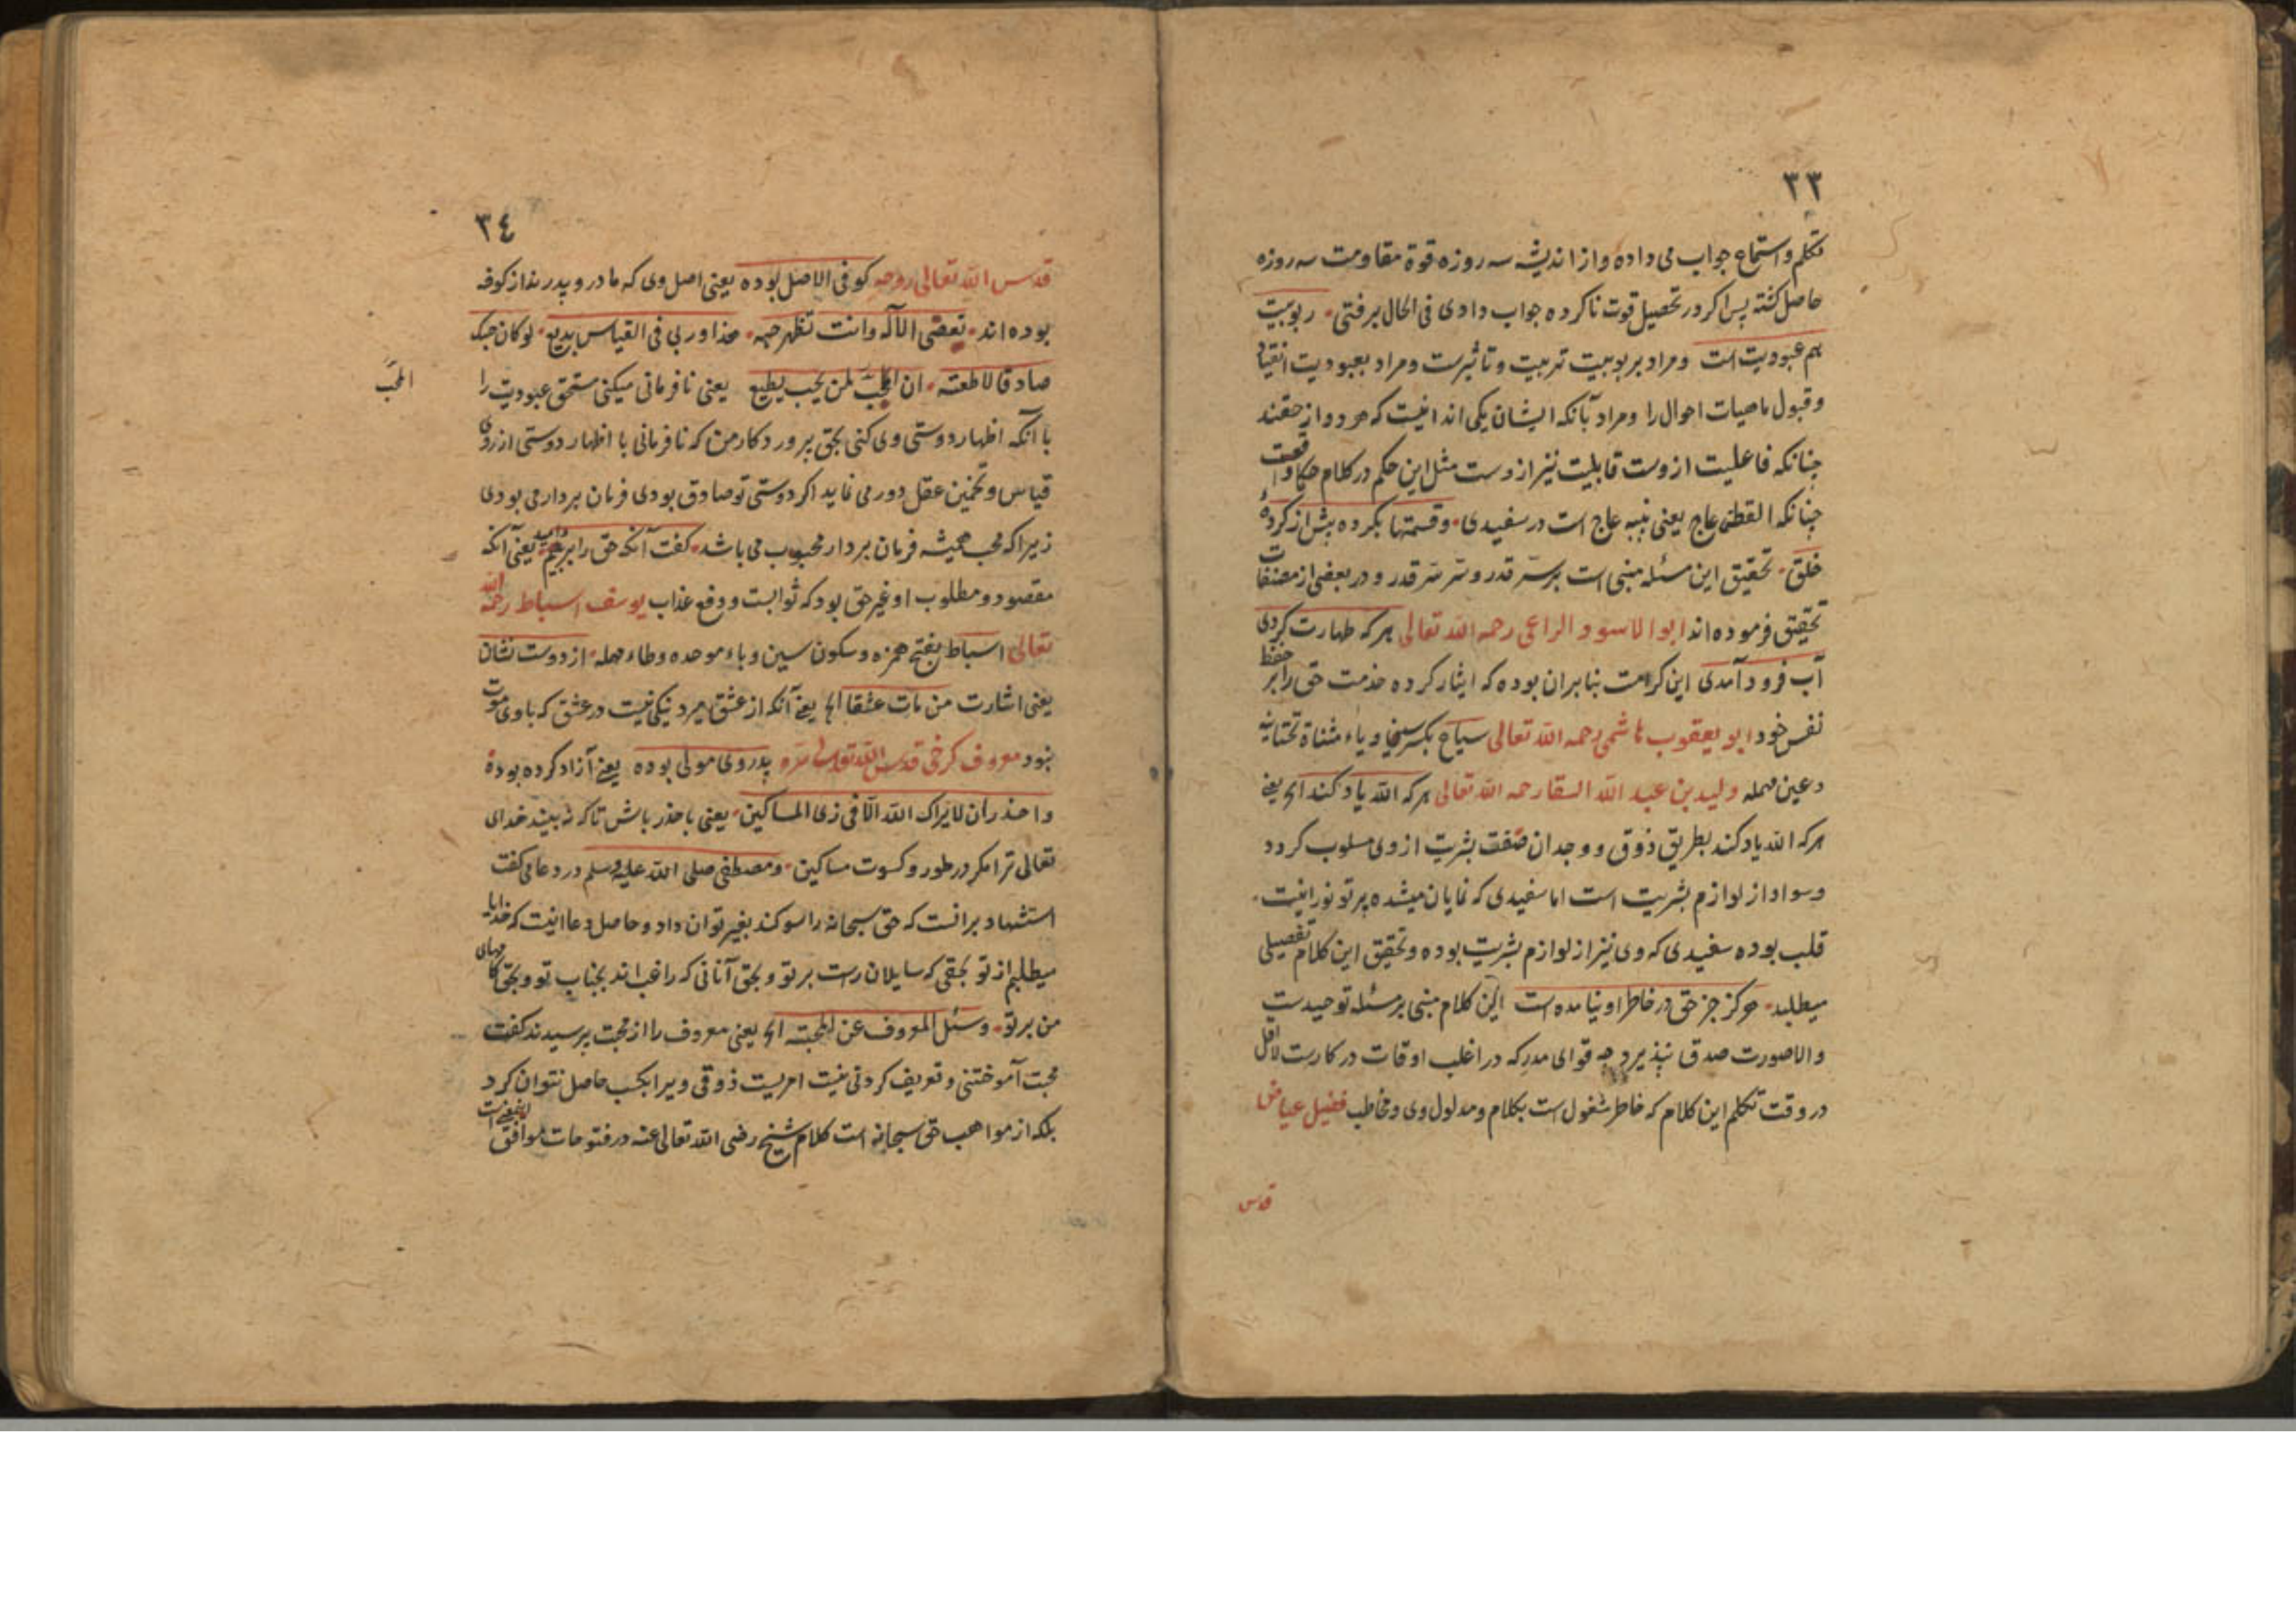 ٣٣
تکلم و استماع جواب می داده و از اندیشه سه روزه قوة مقاومت سه روزه
حاصل کشته پس اکر در تحصیل قوت ناکرده جواب دادی فی الحال برفتی ربوبیت
هم عبودیت است و مراد بربوبیت تربیت و تأثیرست و مراد بعبودیت انقیاد
و قبول ماهیات احوال را و مراد بآنکه ایشان یکی اند انیست که هر دو از حقند
چنانکه فاعلیت ازوست قابلیت نیز ازوست مثل این حکم در کلام حکما واقعست
چنانکه القطن عاج یعنی پنبه عاج است در سفیدی وقسمتها بکرده پیش از کردهٔ
خلق تحقیق این مسئله مبنی است برسّر قدر و سّر سّر قدر و در بعضی از مصنفات
تحقیق فرموده اند ابو الاسود الراعی رحمه الله تعالی هر که طهارت کردی
آب فرود آمدی این کرامت بنابران بوده که ایثار کرده خدمت حق را بر حفظ
نفس خود ابو یعقوب هاشمی رحمه الله تعالی سیاح بکسر و یاء مثناة تحتانیه
و عین مهمله ولید بن عبد الله السقا رحمه الله تعالی هر که الله یاد کند الخ یعنی
هر که الله یاد کند بطریق ذوق و وجدان صفت بشریت از وی مسلوب کردد
و سواد از لوازم بشریت است اما سفیدی که نمایان میشده پرتو نورانیت
قلب بوده سفیدی که وی نیز از لوازم بشریت بوده و تحقیق این کلام تفصیلی
میطلبد هرکز جز حق در خاطر او نیامده است این کلام مبنی بر مسئله توحیدست
والا صورت صدق نپذیرد چه قوای مدرکه در اغلب اوقات در کارست لا اقل
در وقت تکلم این کلام که خاطر مشغول است بکلام و مدلول وی و مخاطب فضیل عیاض
قدس
٣٤
قدس الله تعالی روحه کوفی الاصل بوده یعنی اصل وی که مادر و پدرند از کوفه
بوده اند تعصی الآله وانت تظهر حبه هذا وربی فی القیاس بدیع لو کان حبک
صادقا لاطعته ان المحب لمن یحب یطیع یعنی نافرمانی میکنی مستحق عبودیت را
المحبّ
با آنکه اظهار دوستی وی کنی بحق پروردکار من که نافرمانی با اظهار دوستی از روی
قیاس و تخمین عقل دور می نماید اکر دوستی تو صادق بودی فرمان بردار می بودی
زیرا که محب همیشه فرمان بردار محبوب می باشد کفت آنکه حق را یعنی آنکه
مقصود و مطلوب او غیر حق بود که ثوابست و دفع عذاب یوسف اسباط رحمه الله
تعالی اسباط بفتح همزه و سکون سین و باء موحده و طاء مهمله از دوست نشان
یعنی اشارت من مات عشقا الخ یعنی آنکه از عشق میرد نیکی نیست در عشق که با وی موت
نبود معروف کرخی قدس الله تعالی سّره پدر وی مولی بوده یعنی آزاد کرده بوده
واحذر ان لایراک الله الّا فی زی المساکین یعنی با حذر باش تا که نه بیند خدای
تعالی ترا مکر در طور و کسوت مساکین و مصطفی صلی الله علیه وسلم در دعا می کفت
استشهاد برانست که حق سبحانه را سوکند بغیر توان داد و حاصل دعا اینست که خدایا
میطلبم از تو بحقی که سایلان راست بر تو و بحق آنانی که راغب اند بجناب تو و بحق کامهای
من بر تو وسئل المعروف عن المحبته الخ یعنی معروف را از محبت پرسیدند کفت
محبت آموختنی و تعریف کردنی نیست امریست ذوقی ویرا بکسب حاصل نتوان کرد
بلکه از مواهب حق سبحانه است کلام شیخ رضی الله تعالی عنه در فتوحات موافق اینمعنی است